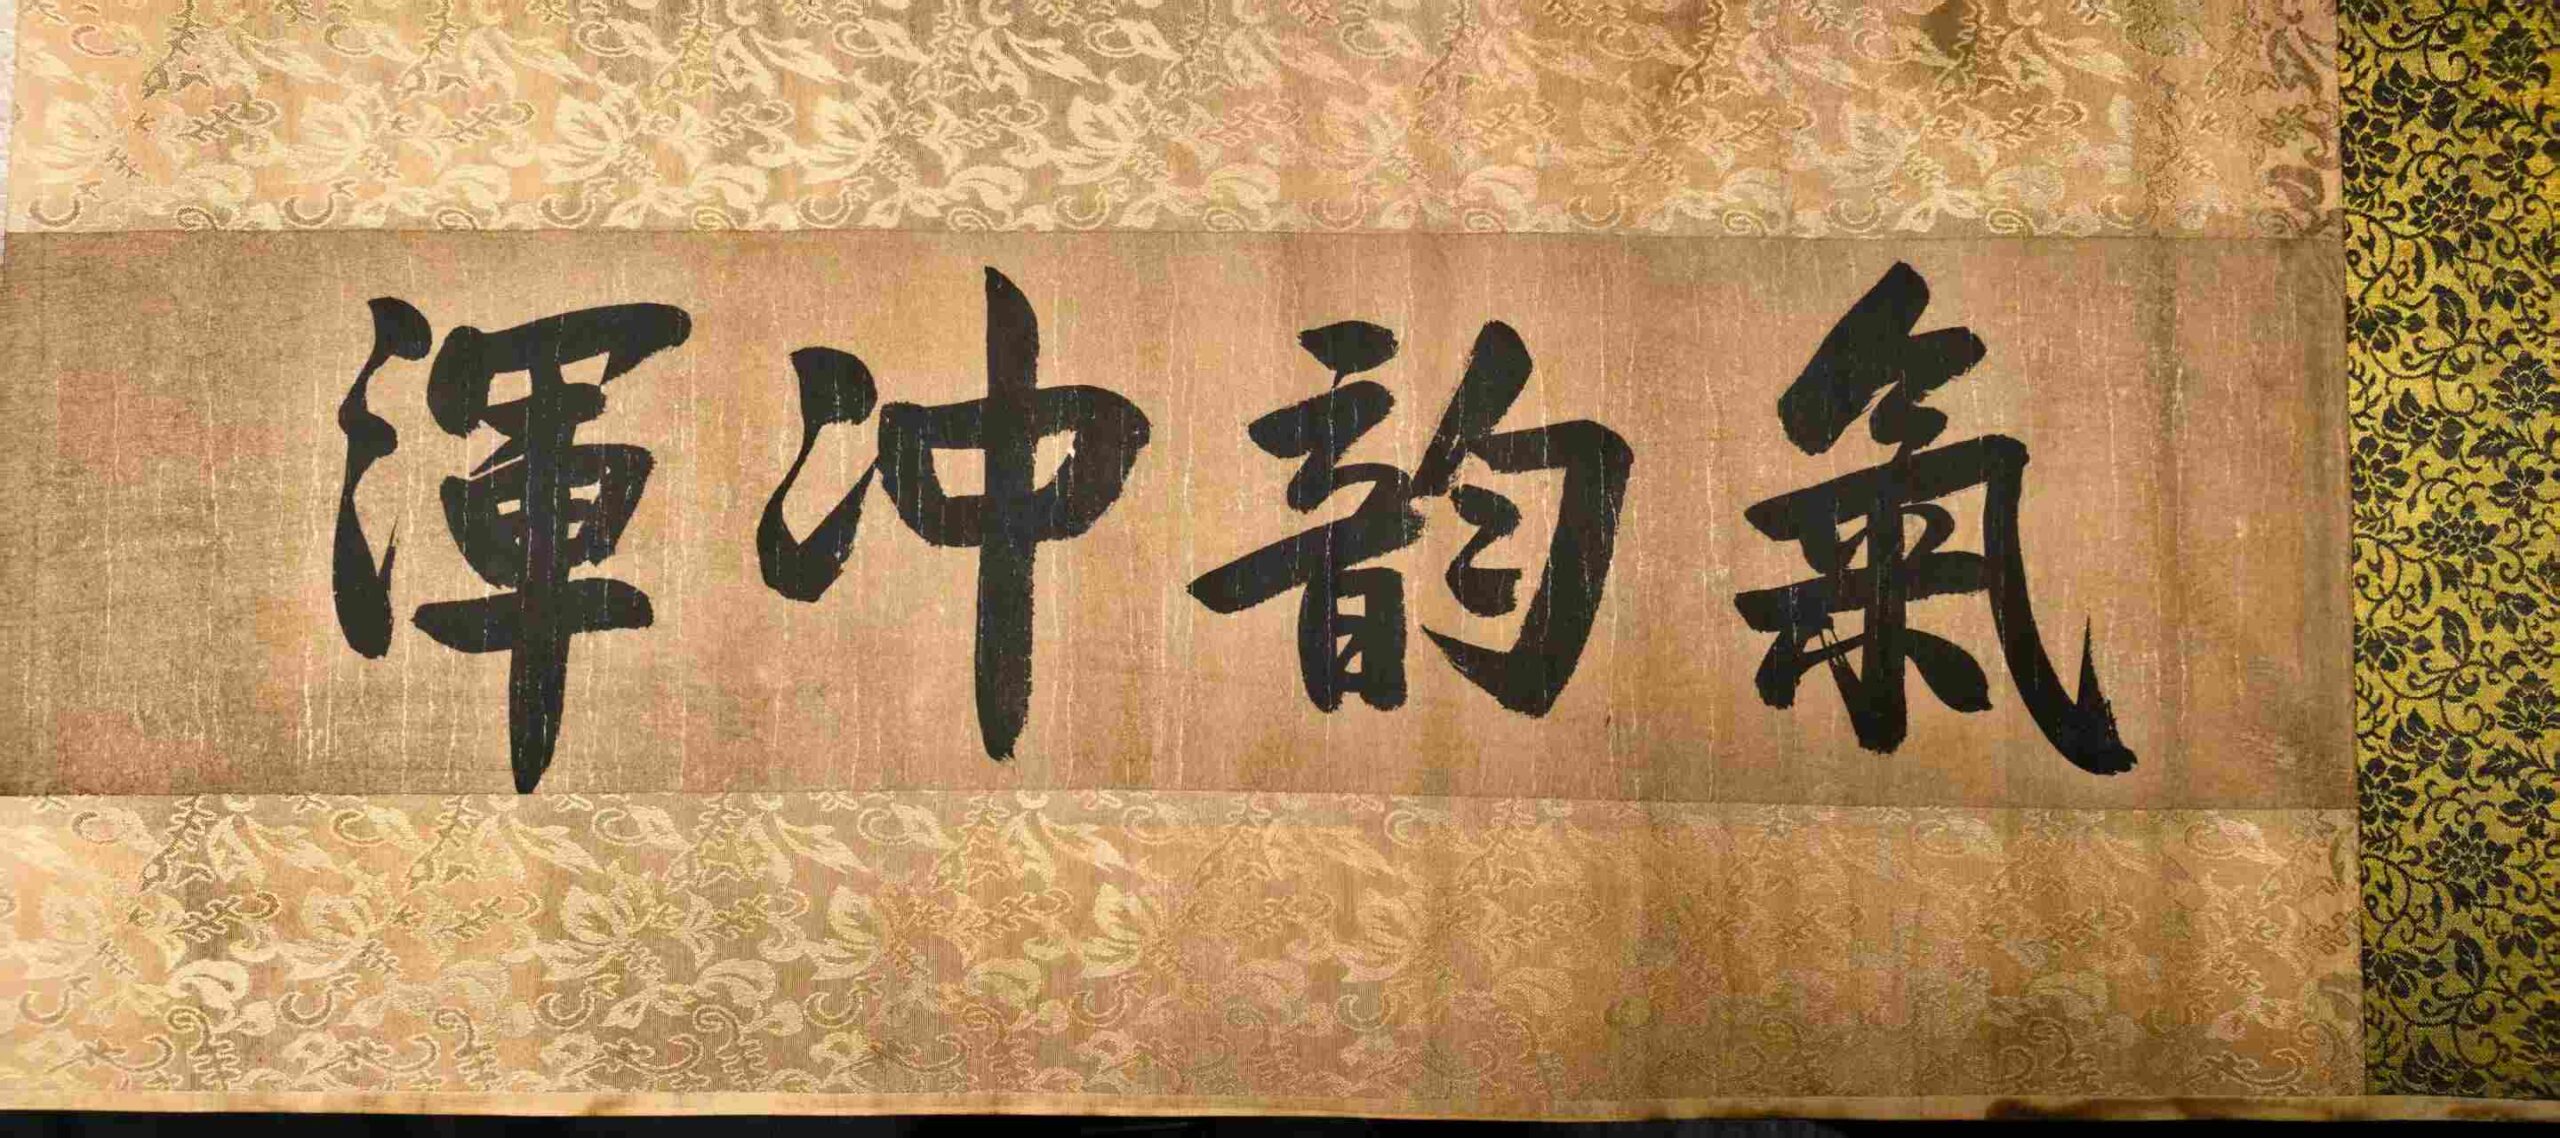 氣韵冲渾